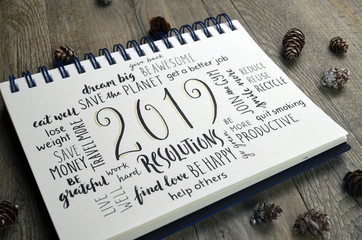 give back
BE AWESOME
dream big
get a better job
SAVE THE PLANET
smile more
REDUCE
REUSE
RECYCLE
JOIN GYM
eat well
lose weight
SAVE MONEY
TRAVEL MORE
2019
RESOLUTIONS
quit smoking
BE MORE PRODUCTIVE
BE grateful
work hard
BE HAPPY
LIVE WELL
find love
help others